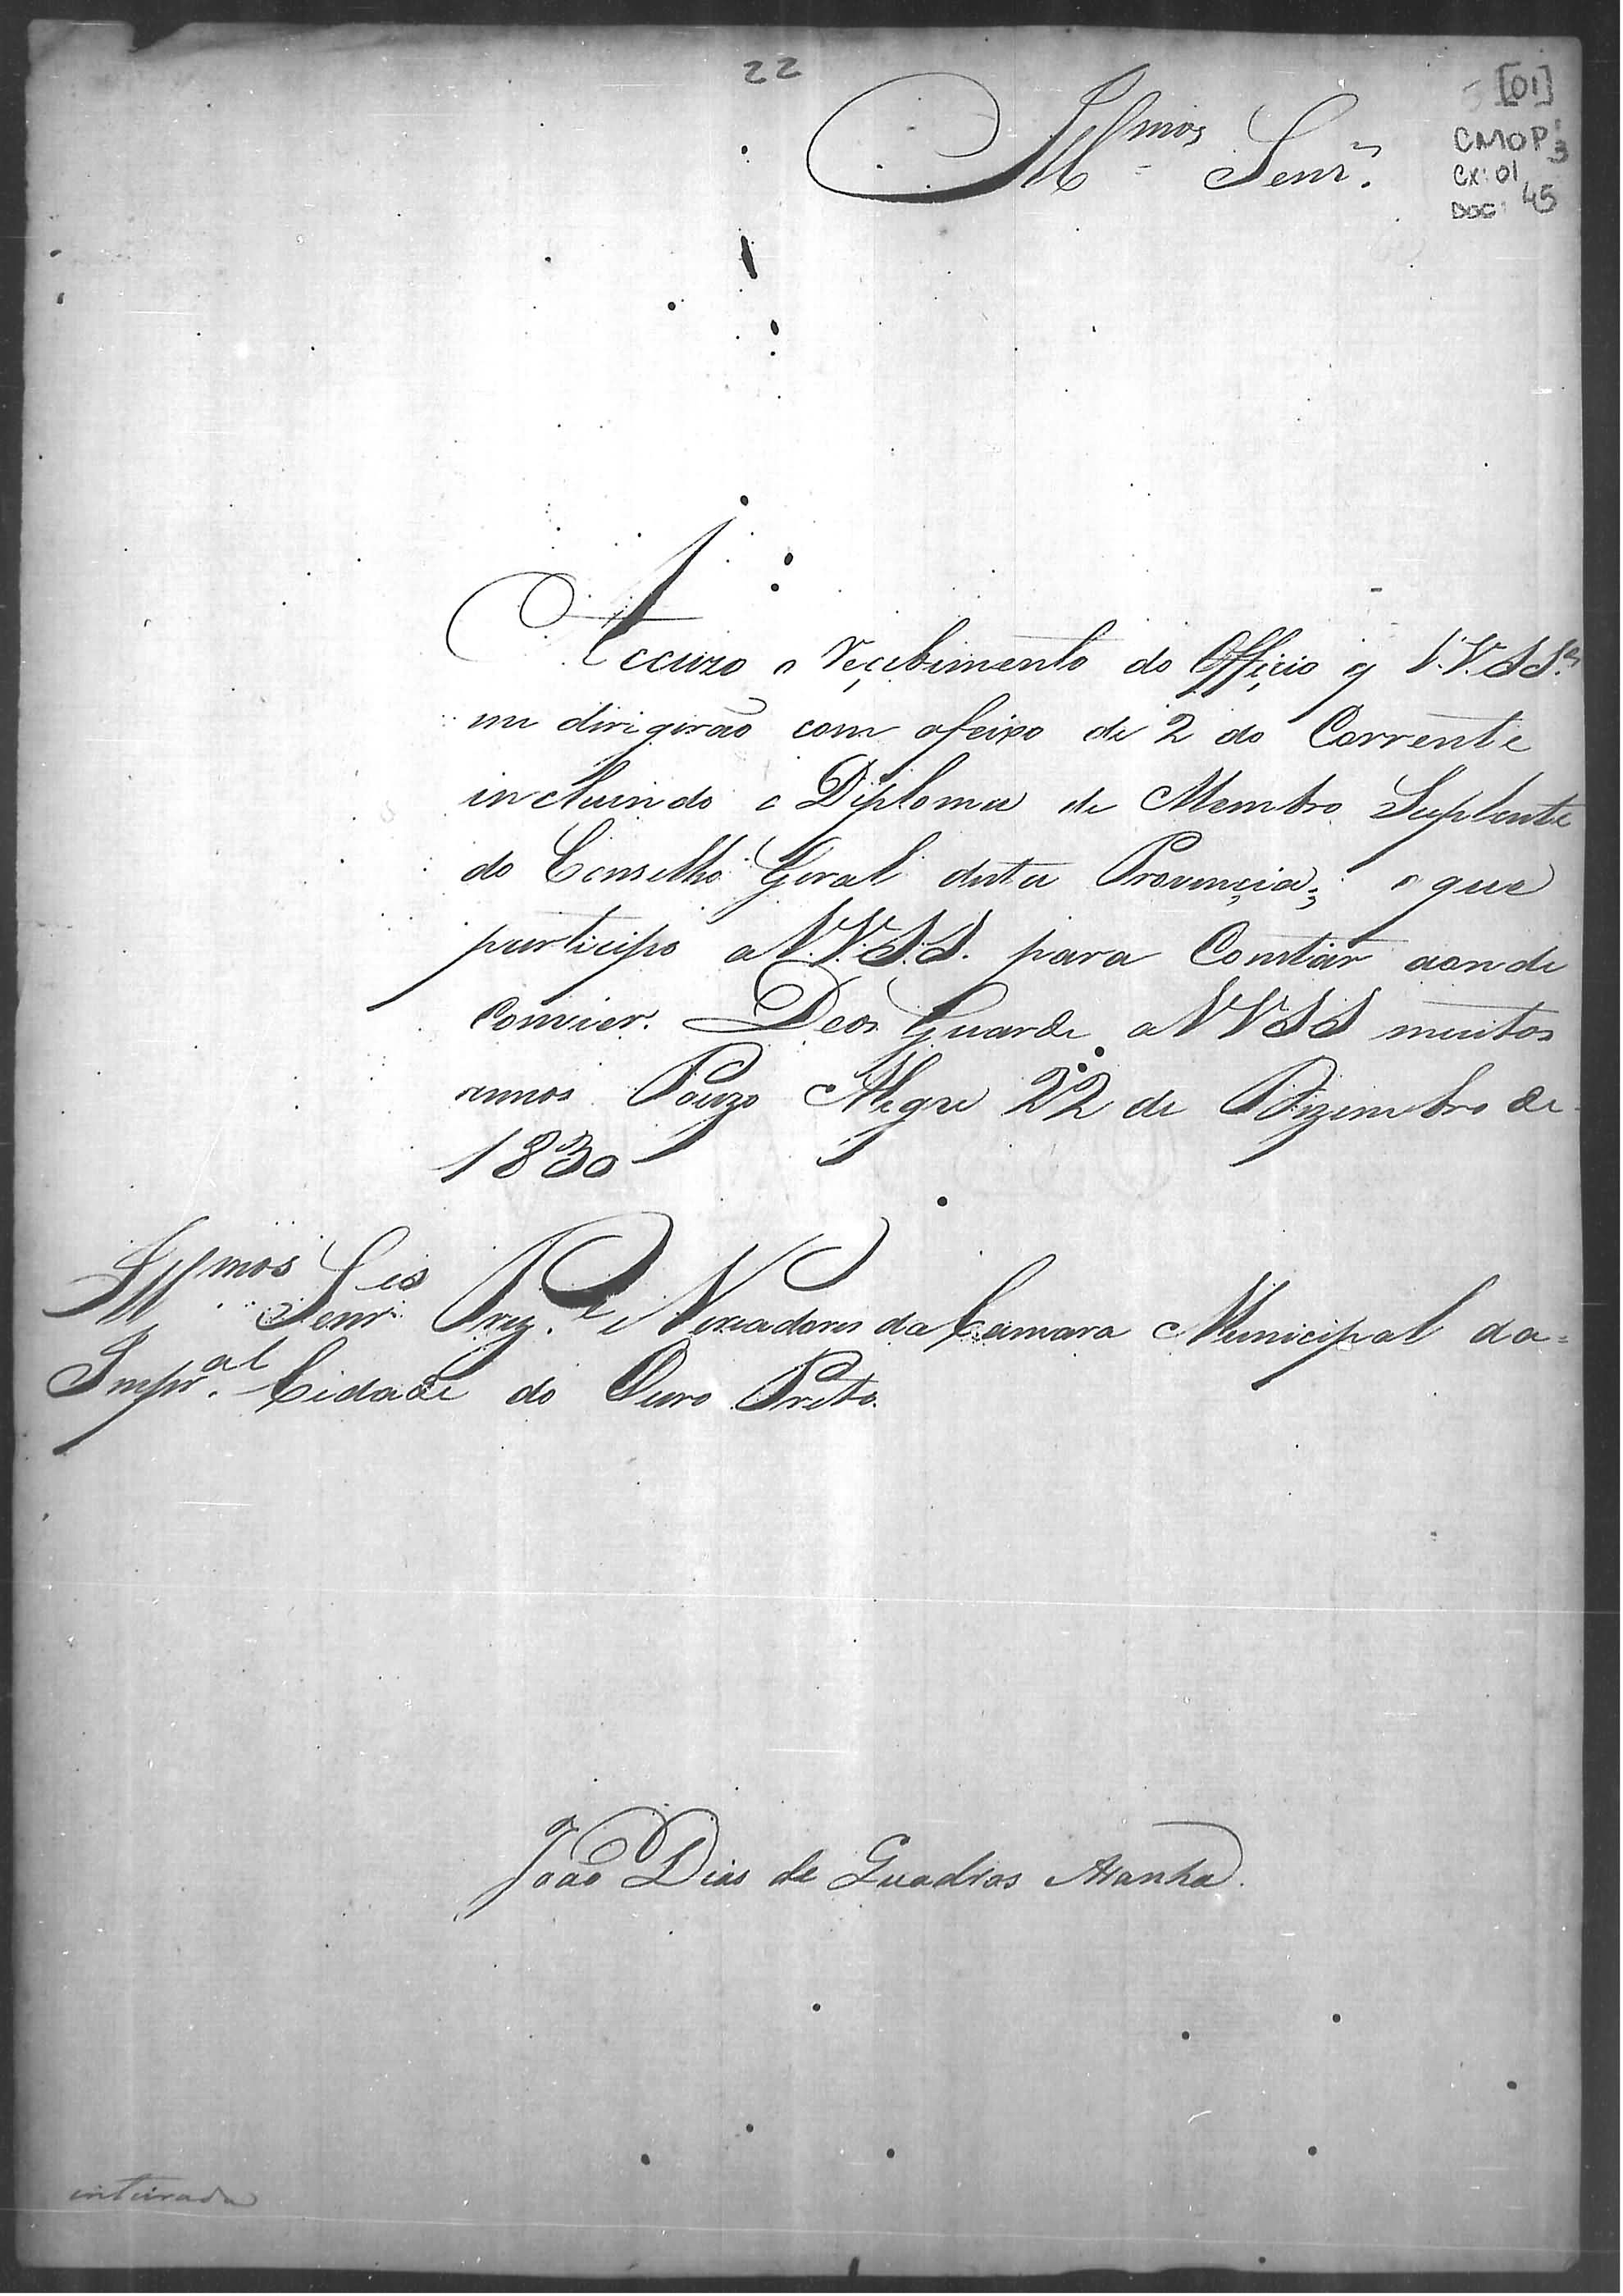 22
[01]
CMOP 3
CX: 01
DOC: 45
Illmos Senrs.
Accuzo o reçebimento do Offiçio q V.V.S.S.as
me dirigirão com o feixo de 2 do Corrente
incluindo o Diploma de Membro Suplente
do Conselho Geral desta Provinçia; o que
participo a V.V.S.S. para Constar aonde
Convier. Deos Guarde a VVSS muitos
annos Pouzo Alegre 22 de Dizembro de
1830
Illmos Senrs Prez.te e Vereadores da Camara Municipal da
Imp.al Cidade do Ouro Preto.
João Dias de Quadros Aranha.
inteirada